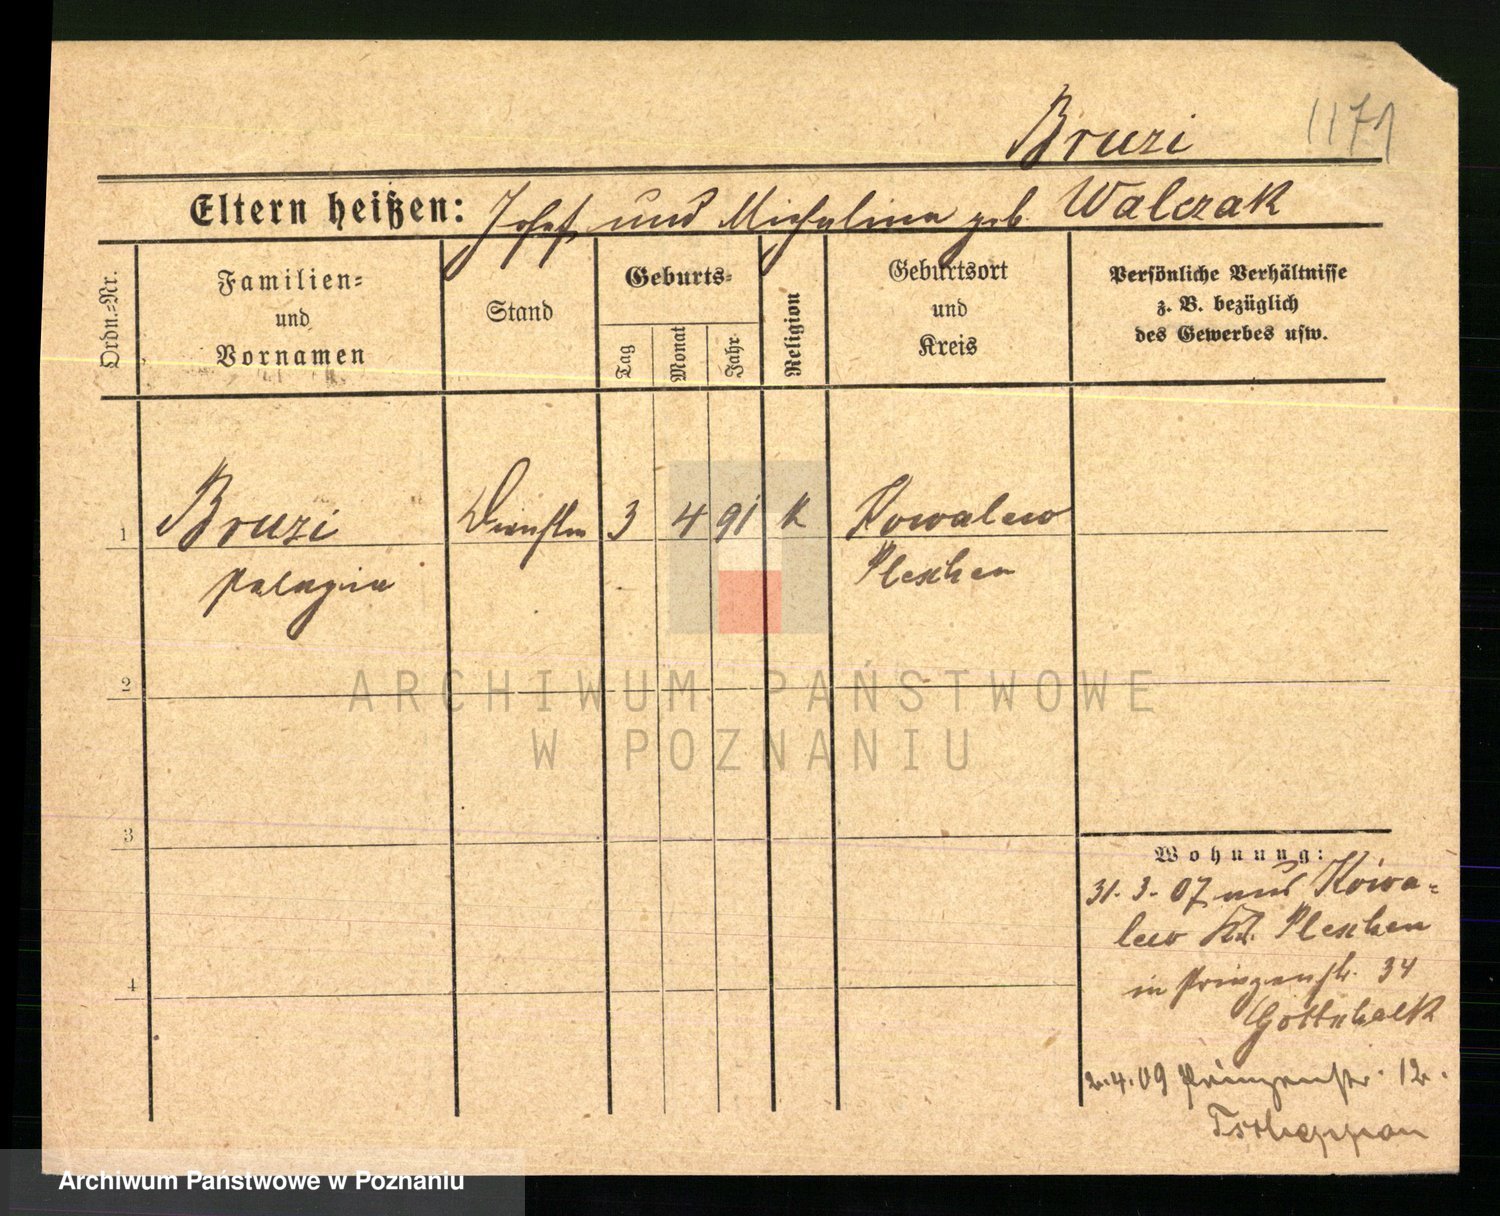 1171
Bruzi
Eltern heißen: Josef und Michalina geb. Walczak
Ordn.-Nr.
Familien-
und
Vornamen
Stand
Geburts-
Tag
Monat
Jahr
Religion
Geburtsort
und
Kreis
Persönliche Verhältnisse
z. B. bezüglich
des Gewerbes usw.
1 Bruzi 3 4 91 k Kowalew
Pelagia Pleschen
2
3
4
Wohnung:
31.3.07 aus Kowa-
lew Kr. Pleschen
in Prinzenstr. 34
Gottschalk
2.4.09 Prinzenstr. 12.
ARCHIWUM PAŃSTWOWE
W POZNANIU
Archiwum Państwowe w Poznaniu